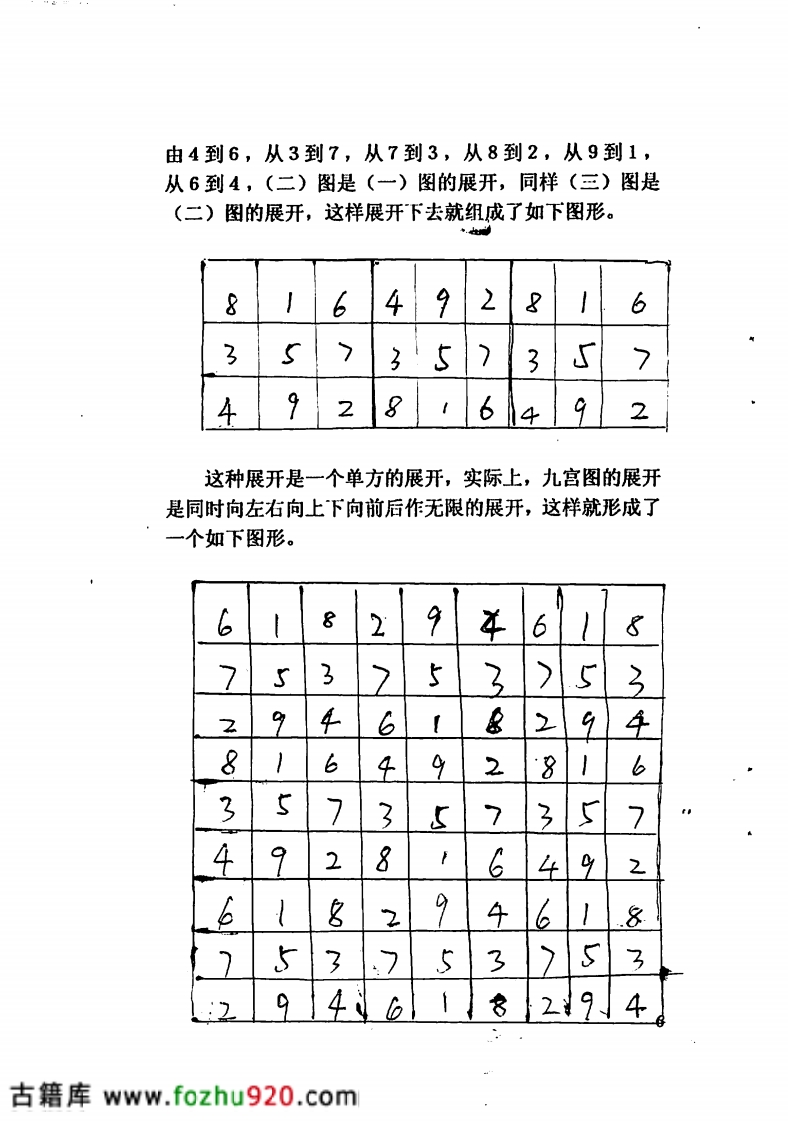 由4到6，从3到7，从7到3，从8到2，从9到1，
从6到4，（二）图是（一）图的展开，同样（三）图是
（二）图的展开，这样展开下去就组成了如下图形。
8 1 6 4 9 2 8 1 6
3 5 7 3 5 7 3 5 7
4 9 2 8 1 6 4 9 2
这种展开是一个单方的展开，实际上，九宫图的展开
是同时向左右向上下向前后作无限的展开，这样就形成了
一个如下图形。
6 1 8 2 9 4 6 1 8
7 5 3 7 5 3 7 5 3
2 9 4 6 1 8 2 9 4
8 1 6 4 9 2 8 1 6
3 5 7 3 5 7 3 5 7
4 9 2 8 1 6 4 9 2
6 1 8 2 9 4 6 1 8
7 5 3 7 5 3 7 5 3
2 9 4 6 1 8 2 9 4
6
古籍库 www.fozhu920.com